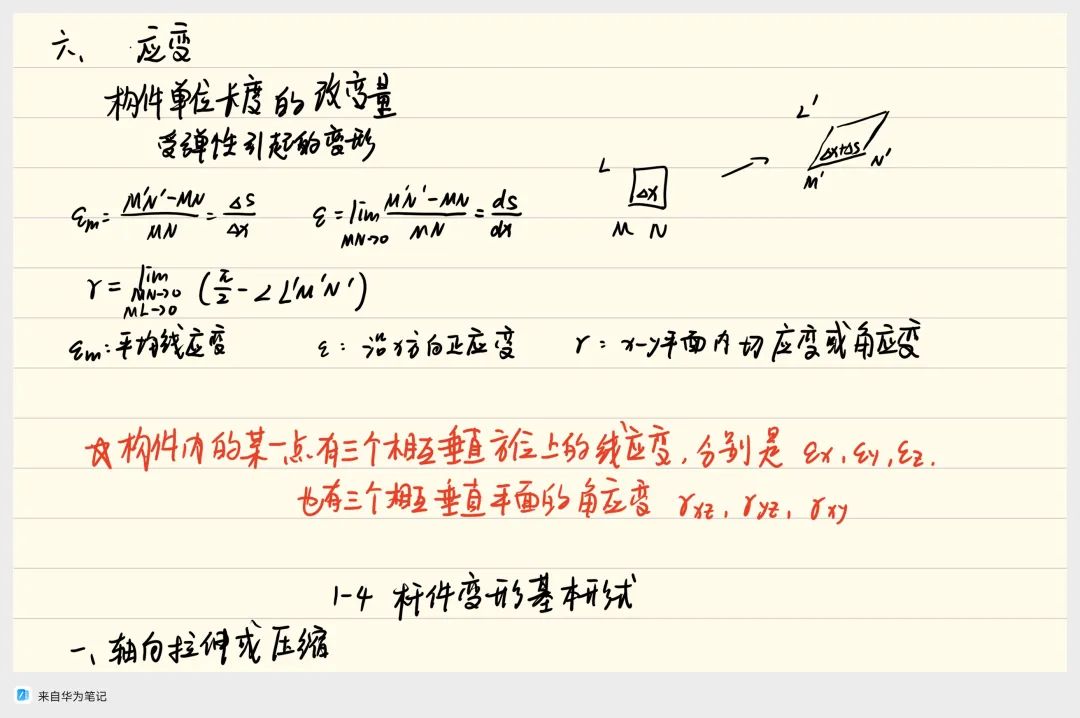 六、应变
构件单位长度的改变量
受弹性引起的变形
L
Δx
M N
L'
Δx+Δs
M' N'
εm = (M'N'-MN)/MN = Δs/Δx  ε = lim MN→0 (M'N'-MN)/MN = ds/dx
γ = lim MN→0 ML→0 (π/2 - ∠L'M'N')
εm:平均线应变  ε:沿x方向正应变  γ:x-y平面内切应变或角应变
☆构件内的某一点有三个相互垂直方位上的线应变,分别是 εx,εy,εz.
也有三个相互垂直平面的角应变 γxz, γyz, γxy
1-4 杆件变形基本形式
一、轴向拉伸或压缩
来自华为笔记